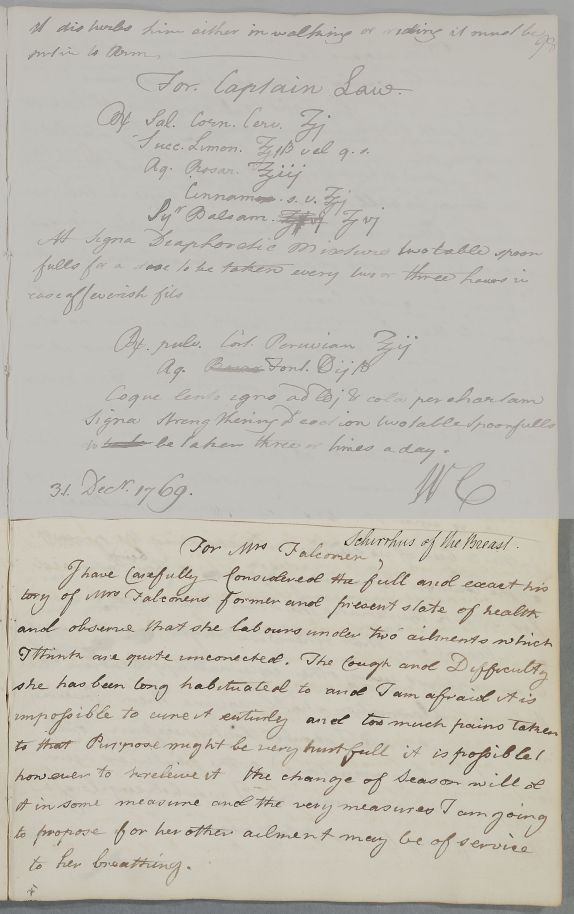 it disturbs him either in walking or riding it must be
98
put in to Arm.
For. Captain Law.
Rx Sal. Corn. Cerv. ʒj
Succ. Limon. ℥jß vel q. s.
Aq. Rosar. ℥iij
Cinnamom. s. v. ℥j
Syr Balsam. ʒvj
M Signa Diaphoretic Mixture two table spoon
fulls for a dose to be taken every two or three hours in
case of feverish fits
Rx. pulv. Cort. Peruvian ℥ij
Aq. Font. ß
Coque lento igne ad ℔j & cola per chartam
Signa Strengthening Decoction two table spoonfulls
to be taken three or times a day.
31. Decr. 1769. W C
For Mrs Falconer, Schirrhus of the Breast.
I have Carefully Considered the full and exact his
tory of Mrs Falconers former and present state of health
and observe that she labours under two ailments which
I think are quite unconected. The Cough and Difficulty
she has been long habituated to and I am afraid it is
impossible to cure it entirely and too much pains taken
to that Purpose might be very hurtfull it is possible
however to releive it the change of Season will d
it in some measure and the very measures I am going
to propose for her other ailment may be of service
to her breathing.